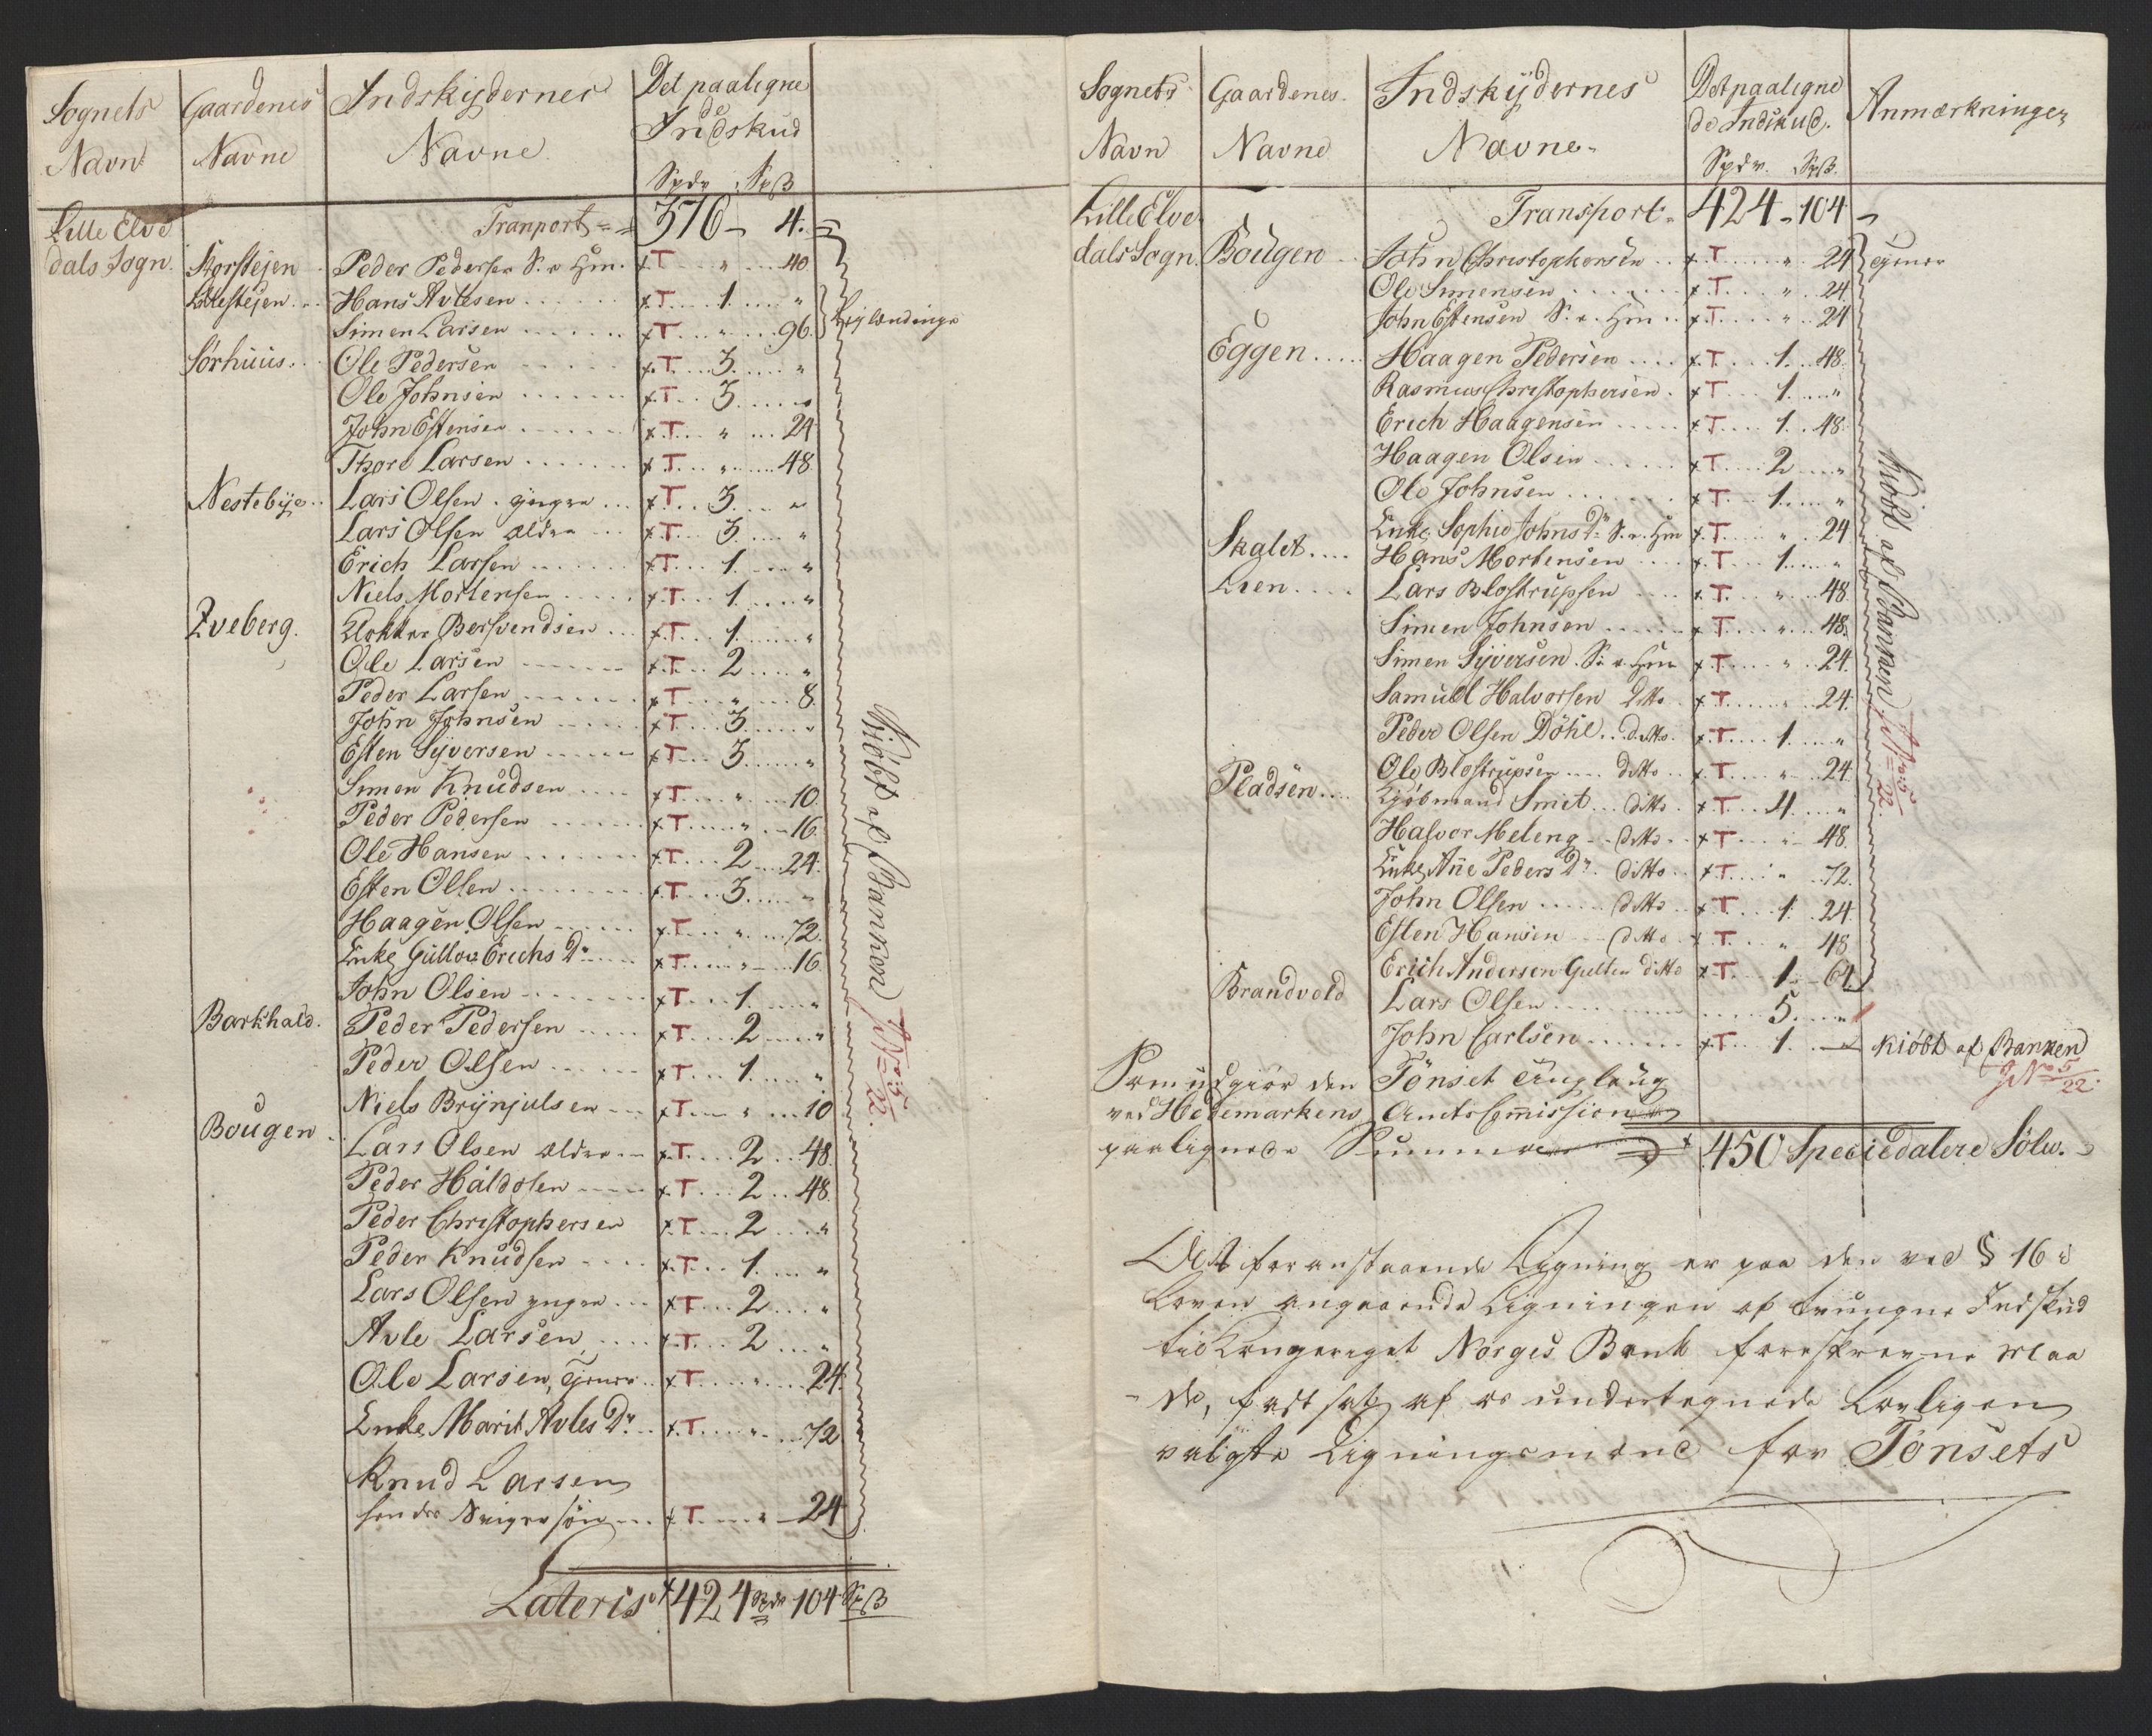 Sognets Navn Gaardenes Navne Indskydernes Navne Det paaligne de Indskud
Spdr SpB
Lille Elve Tranport 376 4.
dals Sogn. Storstejen Peder Pedersen S. v. Hm. x T " 40
Lillestejen Hans Avlesen x T 1. "
Simen Larsen x T " 96. Leylændinge
Sørhuus Ole Pedersen x T 3. "
Ole Johnsen x T 3.
John Estensen x T " 24
Thore Larsen x T " 48
Nestebye Lars Olsen yngre x T 3. "
Lars Olsen ældre x T 3. "
Erich Larsen x T 1. "
Niels Mortensen x T 1. "
Tveberg. Klokker Bersvendsen x T 1. "
Ole Larsen x T 2 "
Peder Larsen x T " 8.
John Johnsen x T 3. "
Esten Syversen x T 3. "
Simen Knudsen x T " 10
Peder Pedersen x T " 16.
Ole Hansen x T 2 24.
Esten Olsen x T 3. "
Haagen Olsen x T " 72.
Enke Gullou Erichs Dr x T " 16
John Olsen x T 1. "
Barkhald. Peder Pedersen x T 2 "
Peder Olsen x T 1. "
Niels Brynjulsen x T " 10
Bougen Lars Olsen ældre x T 2 48
Peder Haldosen x T 2 48
Peder Christophersen x T 2 "
Peder Knudsen x T 1. "
Lars Olsen yngre x T 2 "
Avle Larsen x T 2 "
Ole Larsen, Tjener x T " 24.
Enke Marit Avles Dr. x T " 72
Knud Larsen
x T " 24
Kiøbt af Banken J No: 5/22.
Lateris 424 Spdr 104 SpB
Sognets Navn Gaardenes Navne Indskydernes Navne Det paaligne de Indskud. Anmærkninger
Spdr. SpB.
Lille Elve Transport 424 104
dals Sogn. Bougen John Christophersen x T " 24
Ole Simensen x T " 24.
John Estensen S. v. Hm x T " 24
Eggen Haagen Pedersen x T 1. 48
Rasmus Christophersen x T 1. "
Erich Haagensen x T 1. 48
Haagen Olsen x T 2 "
Ole Johnsen x T 1. "
Enke Sophie Johns Dr S. v. Hm x T " 24
Skalet Hans Mortensen x T 1. "
Lien Lars Blostrupsen x T " 48
Simen Johnsen x T " 48.
Simen Syversen S. v. Hm x T " 24.
Samuel Halvorsen ditto x T " 24.
Peder Olsen Döhl ditto. x T 1. "
Ole Blostrupsen ditto x T " 24
Pladsen Kjøbmand Smit ditto x T 4. "
Halvor Meleng ditto x T " 48.
Enke Ane Peders Dr. ditto x T " 72.
John Olsen ditto x T 1. 24
Esten Hansen ditto x T " 48
Erich Andersen Gulten ditto x T 1. 64
Brandvold Lars Olsen 5. "
John Carlsen x T 1. kiøbt af Banken J No 5/22.
Kiøbt af Banken J No: 5/22.
Som udgiør den Tönset Tinglaug
ved Hedemarkens Amts Commission
paalignede Summa 450 Speciedalere Sölv.
Det foranstaaende Ligning er paa den ved § 16 i
Loven angaaende Ligningen af tvungne Indskud
til Kongeriget Norges Bank foreskrevne Maa
de, fastsat af os undertegnede Lovligen
valgte Ligningsmænd for Tönsets